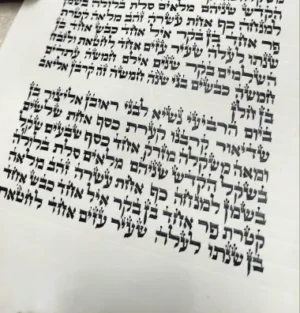 הקדש שניהם מלאים סלת בלולה
למנחה כף אחת עשרה זהב מלאה קטרת
פר אחד בן בקר איל אחד כבש אחד
שנתו לעלה שעיר עזים אחד לחטאת ולזבח
השלמים בקר שנים אילם חמשה עתדים
חמשה כבשים בני שנה חמשה זה קרבן אליאב
בן חלן
ביום הרביעי נשיא לבני ראובן אליצור בן
שדיאור קרבנו קערת כסף אחת שלשים
ומאה משקלה מזרק אחד כסף שבעים שקל
בשקל הקדש שניהם מלאים סלת בלולה
בשמן למנחה כף אחת עשרה זהב מלאה
קטרת פר אחד בן בקר איל אחד כבש אחד
בן שנתו לעלה שעיר עזים אחד לחטאת